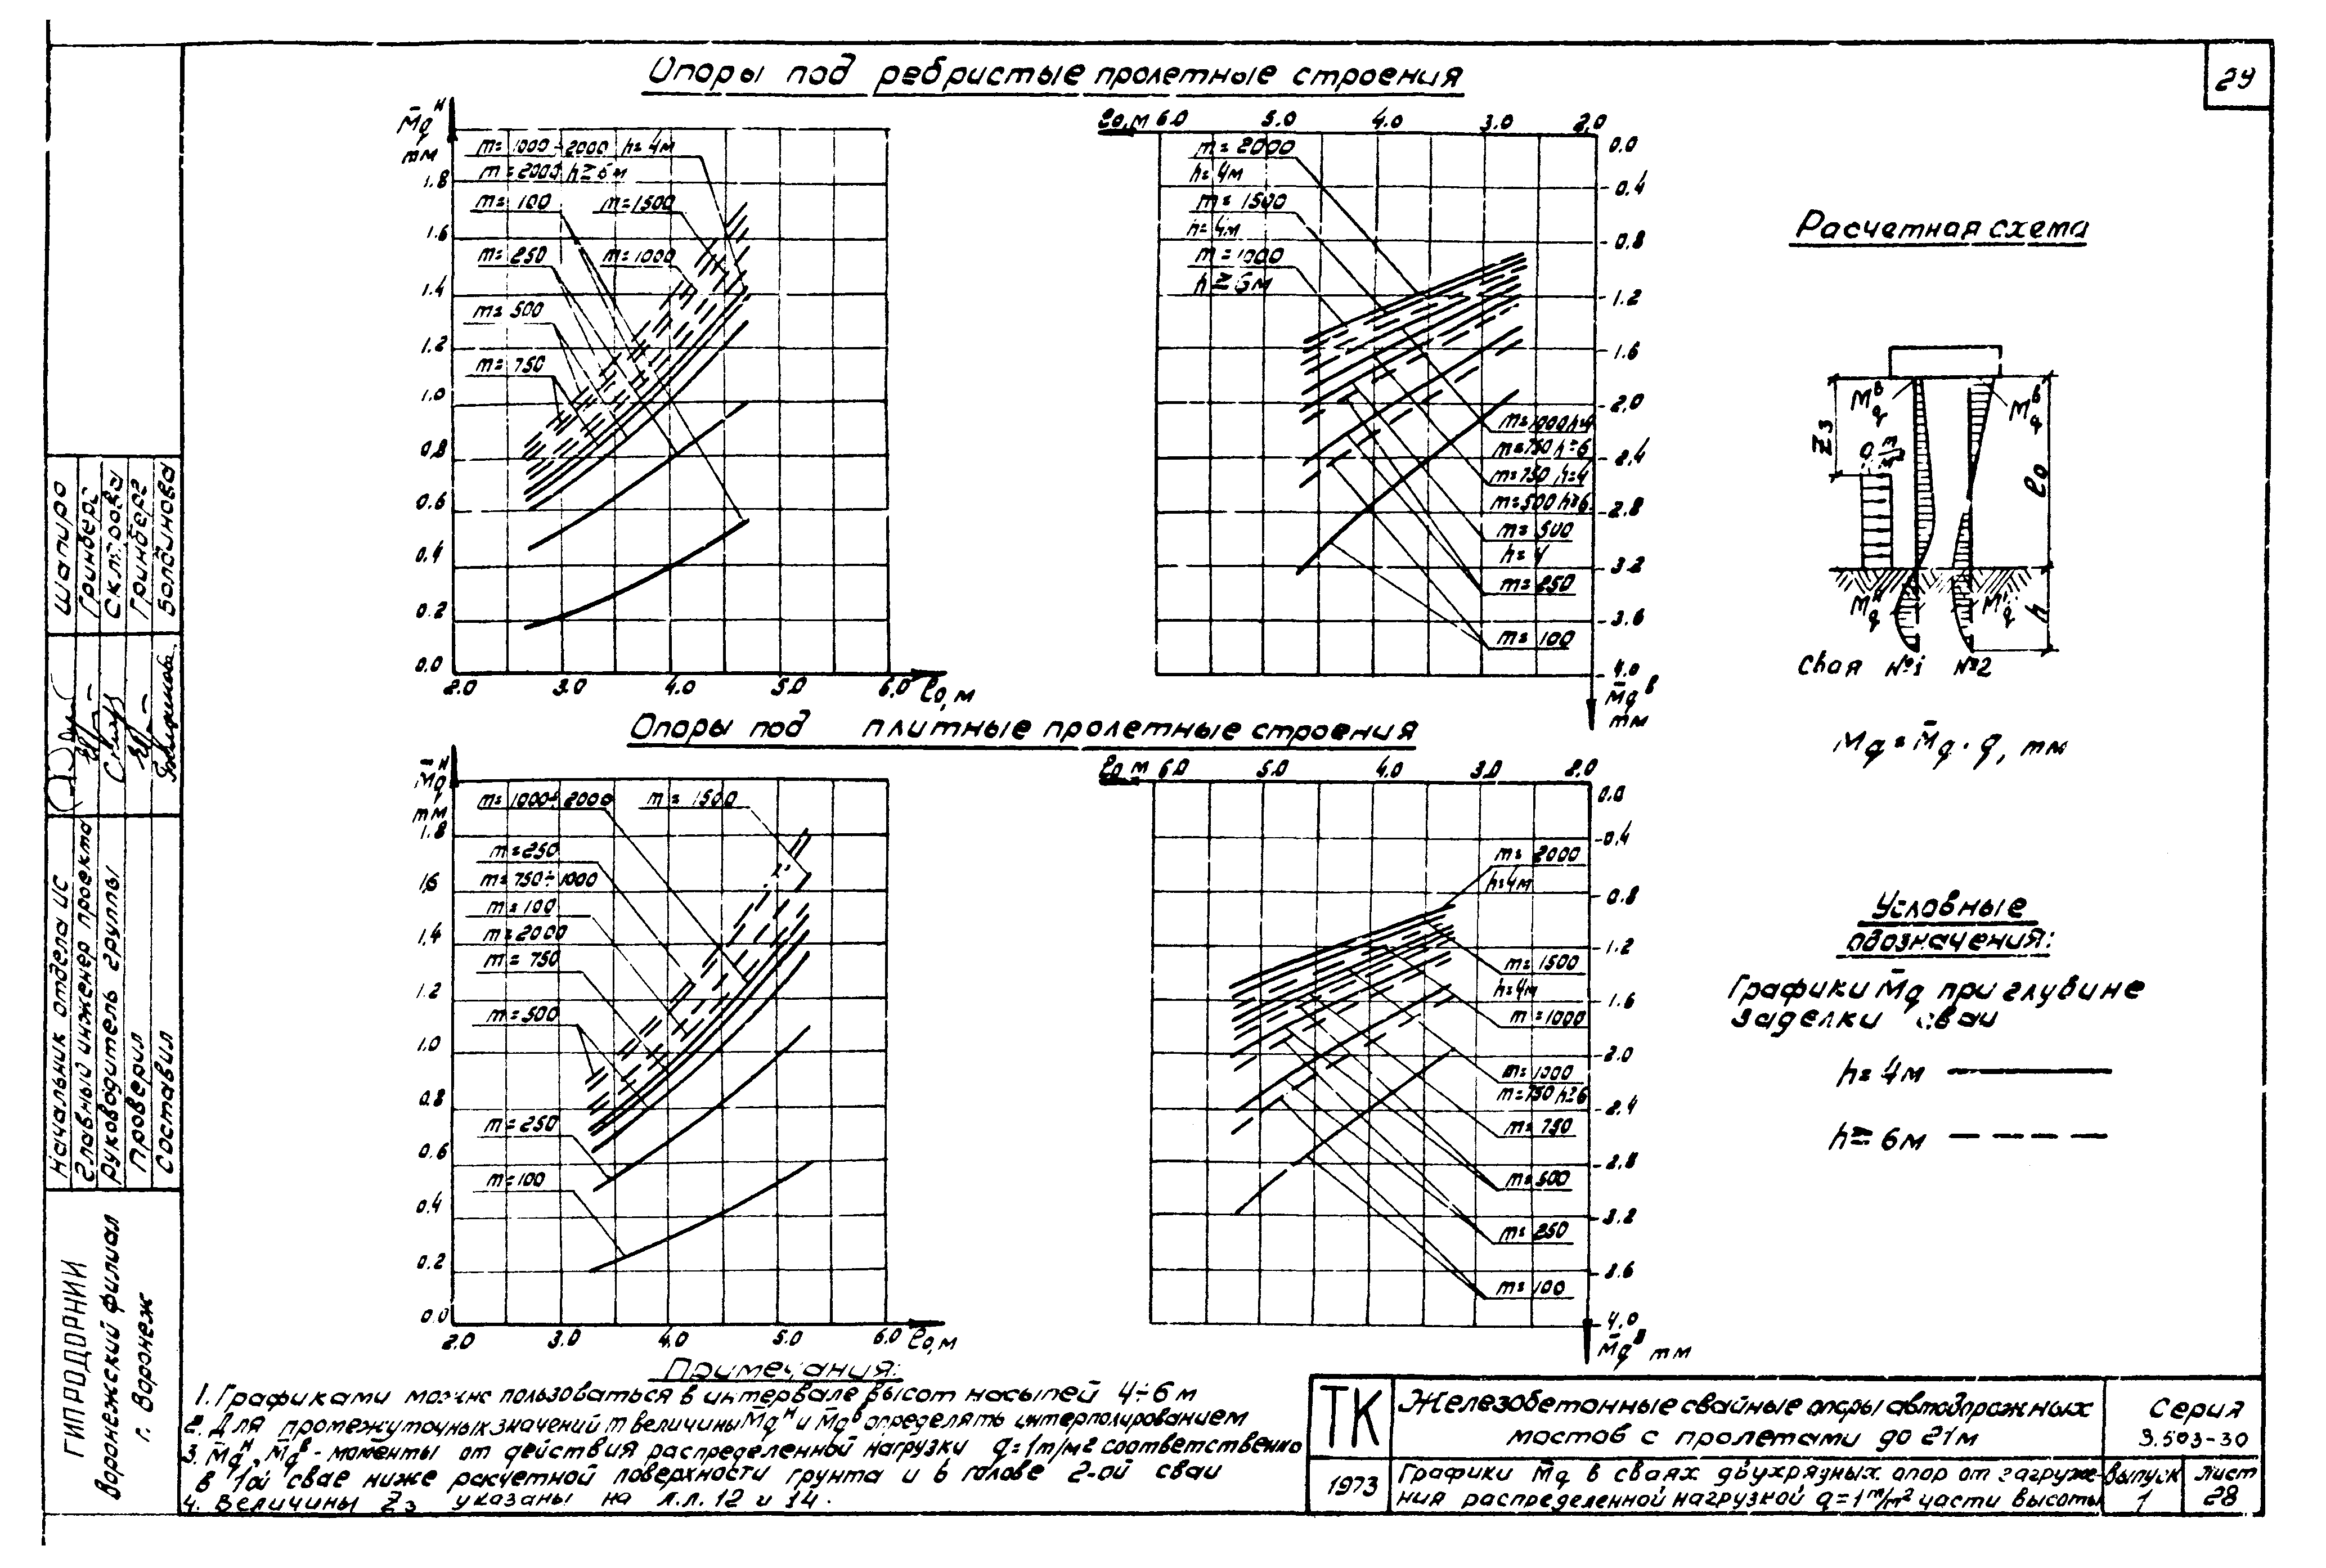 29
Опоры под ребристые пролетные строения
M̄qᴴ
тм
1.8
1.6
1.4
1.2
1.0
0.8
0.6
0.4
0.2
0.0
2.0 3.0 4.0 5.0 6.0 ℓо, м
m=1000÷2000 h=4м
m=2000 h≥6м
m=100 m=1500
m=250 m=1000
m=500
m=750
ℓо, м 6.0 5.0 4.0 3.0 2.0
0.0
0.4
0.8
1.2
1.6
2.0
2.4
2.8
3.2
3.6
4.0
M̄qᴮ
тм
m=2000
h=4м
m=1500
h=4м
m=1000
h≥6м
m=1000 h=4
m=750 h≥6
m=750, h=4
m=500 h≥6
m=500
h=4
m=250
m=100
Расчетная схема
Mqᴮ Mqᴮ
Z₃
ℓо
h
Mqᴴ
Свая №1 №2
Mq=M̄q·q, тм
Опоры под плитные пролетные строения
M̄qᴴ
тм
1.8
1.6
1.4
1.2
1.0
0.8
0.6
0.4
0.2
0.0
2.0 3.0 4.0 5.0 6.0 ℓо, м
m=1000÷2000 m=1500
m=250
m=750÷1000
m=100
m=2000
m=750
m=500
m=250
m=100
ℓо м 6.0 5.0 4.0 3.0 2.0
0.0
0.4
0.8
1.2
1.6
2.0
2.4
2.8
3.2
3.6
4.0
M̄qᴮ тм
m=2000
h=4м
m=1500
h=4м
m=1000
m=1000
m=750 h≥6
m=750
m=500
m=250
m=100
Условные
обозначения:
Графики M̄q при глубине
заделки сваи
h=4м
h≥6м
Примечания:
1. Графиками можно пользоваться в интервале высот насыпей 4÷6 м
2. Для промежуточных значений m величины M̄qᴴ и M̄qᴮ определять интерполированием
3. M̄qᴴ, M̄qᴮ - моменты от действия распределенной нагрузки q=1т/м² соответственно
в 1ой свае ниже расчетной поверхности грунта и в голове 2-ой сваи
4. Величины Z₃ указаны на л.л. 12 и 14.
ТК
1973
Железобетонные свайные опоры автодорожных
мостов с пролетами до 21м
Серия
3.503-30
Графики M̄q в сваях двухрядных опор от загруже-
ния распределенной нагрузкой q=1т/м² части высоты
Выпуск
1
Лист
28
Начальник отдела ИС Шапиро
Главный инженер проекта Гринберг
Руководитель группы
Проверил Гринберг
Составил Болдинова
ГИПРОДОРНИИ
Воронежский филиал
г. Воронеж